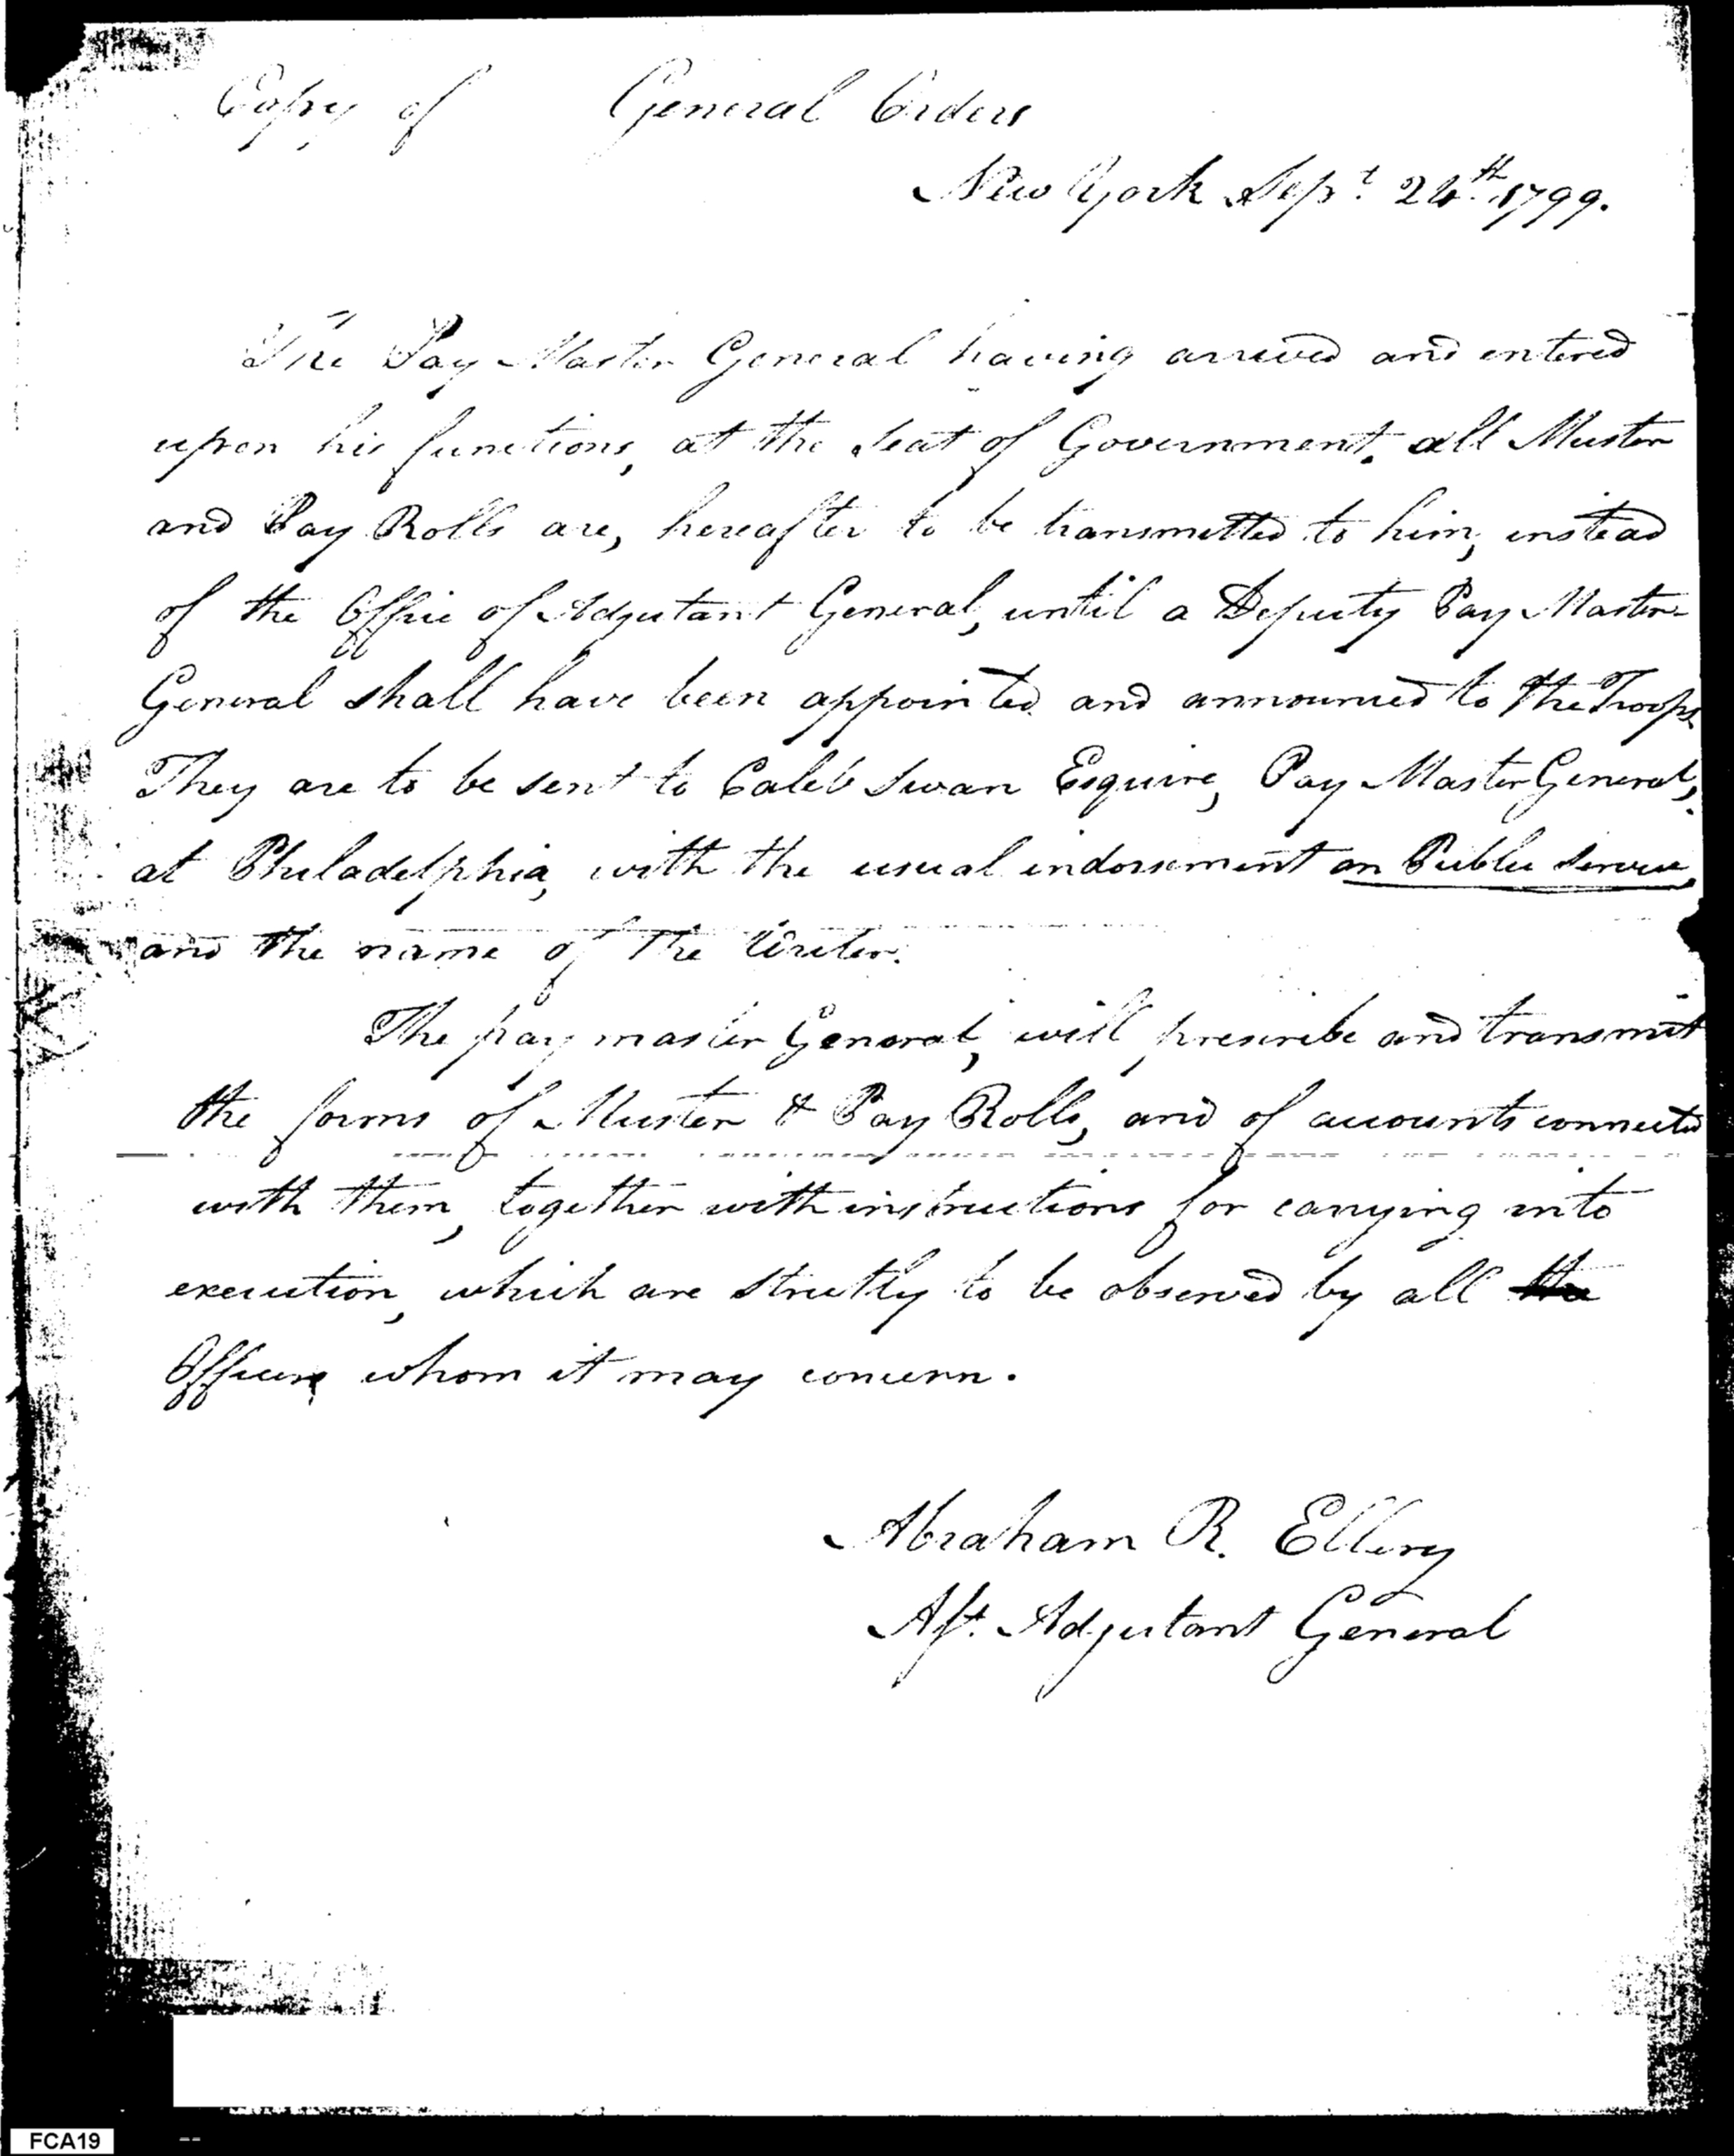 Copy of General Orders
New York Sept. 24th. 1799.
The Pay Master General having arrived and entered
upon his functions, at the Seat of Government, all Muster
and Pay Rolls are, hereafter to be transmitted to him, instead
of the Office of Adjutant General, until a Deputy Pay Master
General shall have been appointed and announced to the Troops
They are to be sent to Caleb Swan Esquire, Pay Master General,
at Philadelphia, with the usual endorsement on Public Service,
and the name of the Writer.
The pay master General, will prescribe and transmit
the forms of Muster & Pay Rolls, and of accounts connected
with them, together with instructions for carrying into
execution, which are strictly to be observed by all the
Officers whom it may concern.
Abraham R. Ellery
Asst. Adjutant General
FCA19